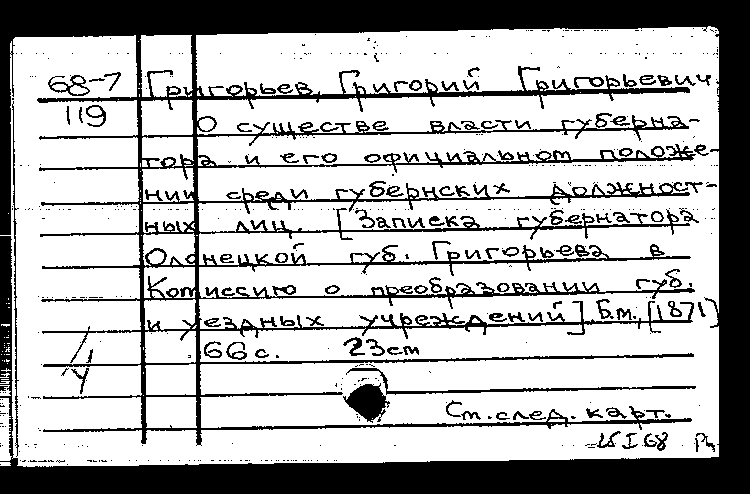 68-7 Григорьев, Григорий Григорьевич.
119 О существе власти губерна-
тора и его официальном положе-
нии среди губернских должност-
ных лиц. [Записка губернатора
Олонецкой губ. Григорьева в
Комиссию о преобразовании губ.
и уездных учреждений] Б.м., [1871]
66 с. 23 см
См. след. карт.
15 I 68